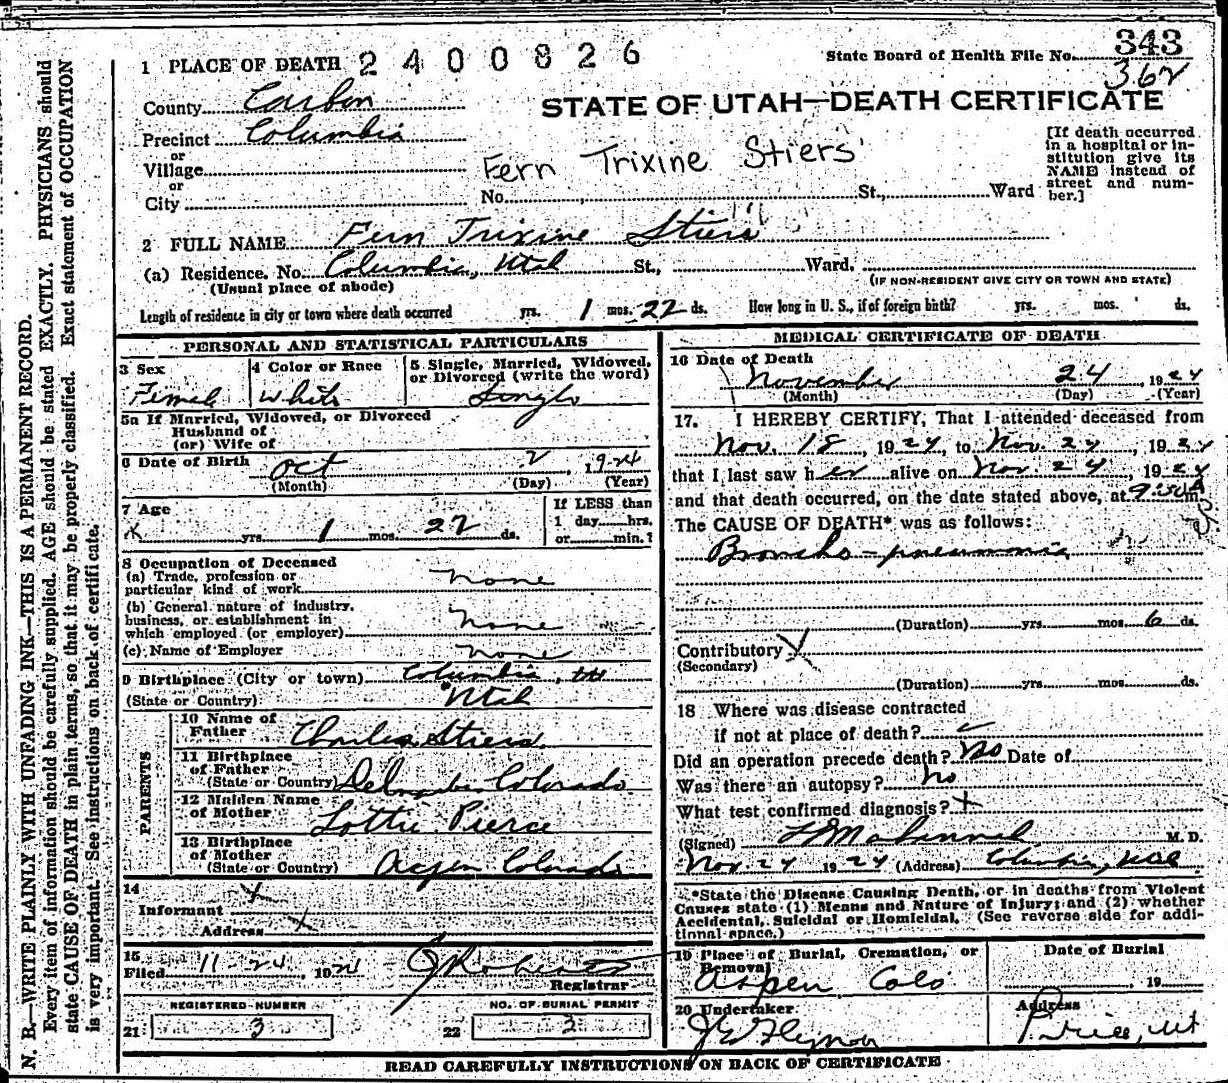 343
State Board of Health File No.
362
1 PLACE OF DEATH 2400826
STATE OF UTAH—DEATH CERTIFICATE
County Carbon
Precinct Columbia
or
Village
or
City
[If death occurred
in a hospital or in-
stitution give its
NAME instead of
street and num-
ber.]
Fern Trixine Stiers
No. St., Ward
2 FULL NAME Fern Trixine Stiers
(a) Residence. No. Columbia, Utah St., Ward.
(Usual place of abode) (IF NON-RESIDENT GIVE CITY OR TOWN AND STATE)
Length of residence in city or town where death occurred yrs. 1 mos. 22 ds. How long in U. S., if of foreign birth? yrs. mos. ds.
PERSONAL AND STATISTICAL PARTICULARS
3 Sex 4 Color or Race 5 Single, Married, Widowed,
or Divorced (write the word)
Femal White Single
5a If Married, Widowed, or Divorced
Husband of
(or) Wife of
6 Date of Birth Oct 2, 1924
(Month) (Day) (Year)
7 Age
x yrs. 1 mos. 22 ds.
If LESS than
1 day hrs.
or min.?
8 Occupation of Deceased
(a) Trade, profession or
particular kind of work none
(b) General nature of industry,
business, or establishment in
which employed (or employer) none
(c) Name of Employer none
9 Birthplace (City or town) Columbia,
(State or Country) Utah
PARENTS
10 Name of
Father Charles Stiers
11 Birthplace
of Father
(State or Country) Colorado
12 Maiden Name
of Mother Lottie Pierce
13 Birthplace
of Mother
(State or Country) Aspen Colorado
14
Informant x
Address x
15
Filed 11-24, 1924 J Roberts
Registrar
REGISTERED NUMBER NO. OF BURIAL PERMIT
21 3 22 3
MEDICAL CERTIFICATE OF DEATH
16 Date of Death
November 24, 1924
(Month) (Day) (Year)
17. I HEREBY CERTIFY, That I attended deceased from
Nov. 18, 1924, to Nov. 24, 1924
that I last saw her alive on Nov. 24, 1924
and that death occurred, on the date stated above, at m.
The CAUSE OF DEATH* was as follows:
Broncho-pneumonia
(Duration) yrs. mos. 6 ds.
Contributory x
(Secondary)
(Duration) yrs. mos. ds.
18 Where was disease contracted
if not at place of death? ✓
Did an operation precede death? No Date of
Was there an autopsy? no
What test confirmed diagnosis? x
(Signed) M. D.
Nov. 24 1924 (Address) Columbia, Utah
*State the Disease Causing Death, or in deaths from Violent
Causes state (1) Means and Nature of Injury; and (2) whether
Accidental, Suicidal or Homicidal. (See reverse side for addi-
tional space.)
19 Place of Burial, Cremation, or
Removal
Aspen Colo
Date of Burial
, 19
20 Undertaker
J E Flynn
Address
Price, Ut
READ CAREFULLY INSTRUCTIONS ON BACK OF CERTIFICATE
N. B.—WRITE PLAINLY WITH UNFADING INK—THIS IS A PERMANENT RECORD.
Every item of information should be carefully supplied. AGE should be stated EXACTLY. PHYSICIANS should
state CAUSE OF DEATH in plain terms, so that it may be properly classified. Exact statement of OCCUPATION
is very important. See instructions on back of certificate.